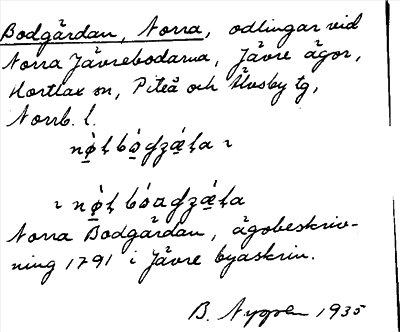 Bodgårdan, Norra, odlingar vid
Norra Jävrebodarna, Jävre ägor,
Hortlax sn, Piteå och Älvsby tg,
Norrb. l.
Norra Bodgårdan, ägobeskriv-
ning 1791 i Jävre byaskrin.
B. Nygren 1935